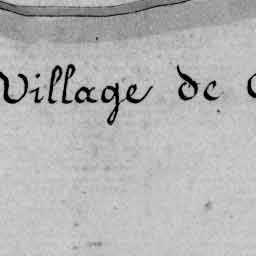 Village de